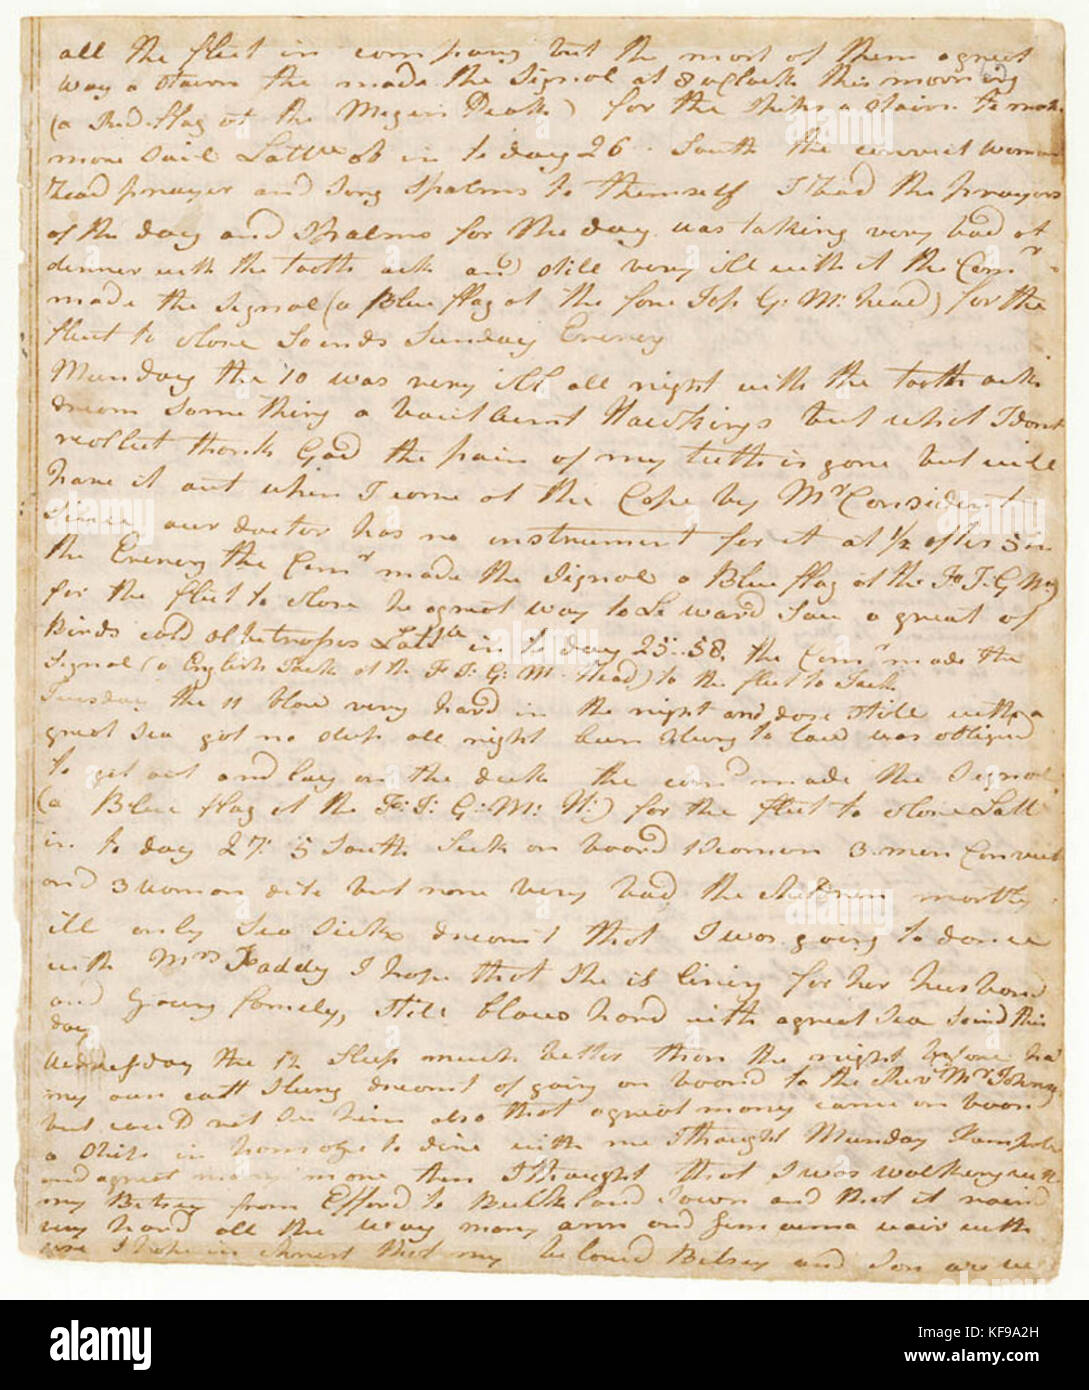 all the fleet in company but the most of them a great
way a starn the made the Signal at 8 oClock this morning
(a Red flag at the Mizen Peak) for the Ships a starn to make
more Sail Lattde ob in to day 26 . South the convict woman
read prayer and Song Spalms to themself I read the prayers
of the day and Spalms for the day was taking very bad at
dinner with the tooth ack and still very ill with it the Comr
made the Signal (a Blue flag at the fore Top G: M: head) for the
fleet to close So ends Sunday Evenen
Munday the 10 was very ill all night with the tooth ack
dream Something a bout Aunt Hawkings but what I dont
recollect thank God the pain of my teeth is gone but will
have it out when I come at the Cape by Mr Consident
Since our doctor has no instrument for it at 1/2 after 5 in
the Evenen the Comr made the Signal a Blue flag at the F. T. G M.
for the fleet to close he a great way to Le ward Saw a great of
Birds cald Albetrosses Lattde in to day 25..58. the Comr made the
Signal (a English Jack at the F T: G: M. Head) to the fleet to Tack
Tuesday the 11 blow very hard in the night and dose still with a
great Sea got no sleep all night been Slung to low was obliged
to get out and lay on the deck the comd made the Signal
(a Blue flag at the F: T: G: M: H:) for the fleet to close Latt
in to day 27: 5 South Seek on board woman 3 men Convict
and 3 woman dito but none very bad the children mostly
ill only Sea Sick dreamt that I was going to dance
with Mrs Faddy I hope that She is living for her husband
and Young famely, still blows hard with a great Sea Send this
day
Wednesday the 12 Sleep much better than the night before had
my own cott Slung dreamt of going on board to the Revd Mr Johnson
but could not See him also that a great many came on board
a Ship in to dine with me I thought Munday
and a great many more then I thought that I was walking with
my Betsey from Efford to Buckland Town and that it raind
very hard all the way many ann and Jemamma wair with
use I hope in Christ that my beloved Betsey and Son are well
alamy
Image ID: KF9A2H
www.alamy.com